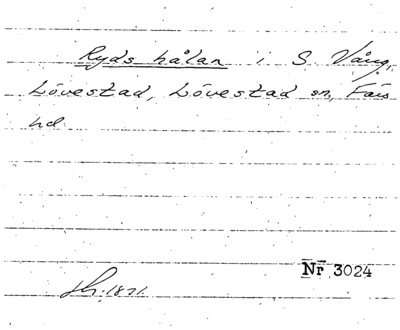 Ryds hålan i S. Vång,
Lövestad, Lövestad sn, Färs
hd.
Nr 3024
Sh. 1831.